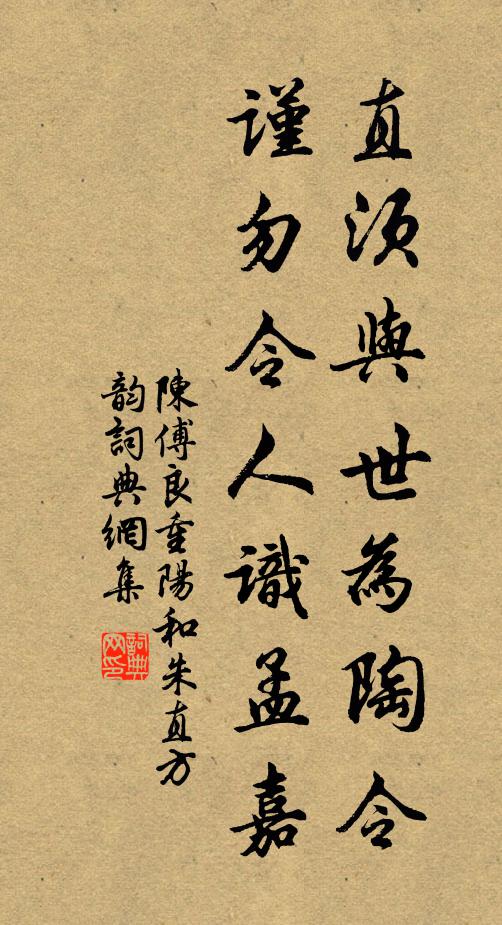 直須與世為陶令
謹勿令人識孟嘉
陳傅良重陽和朱直方
韵詞典網集
詞典网印